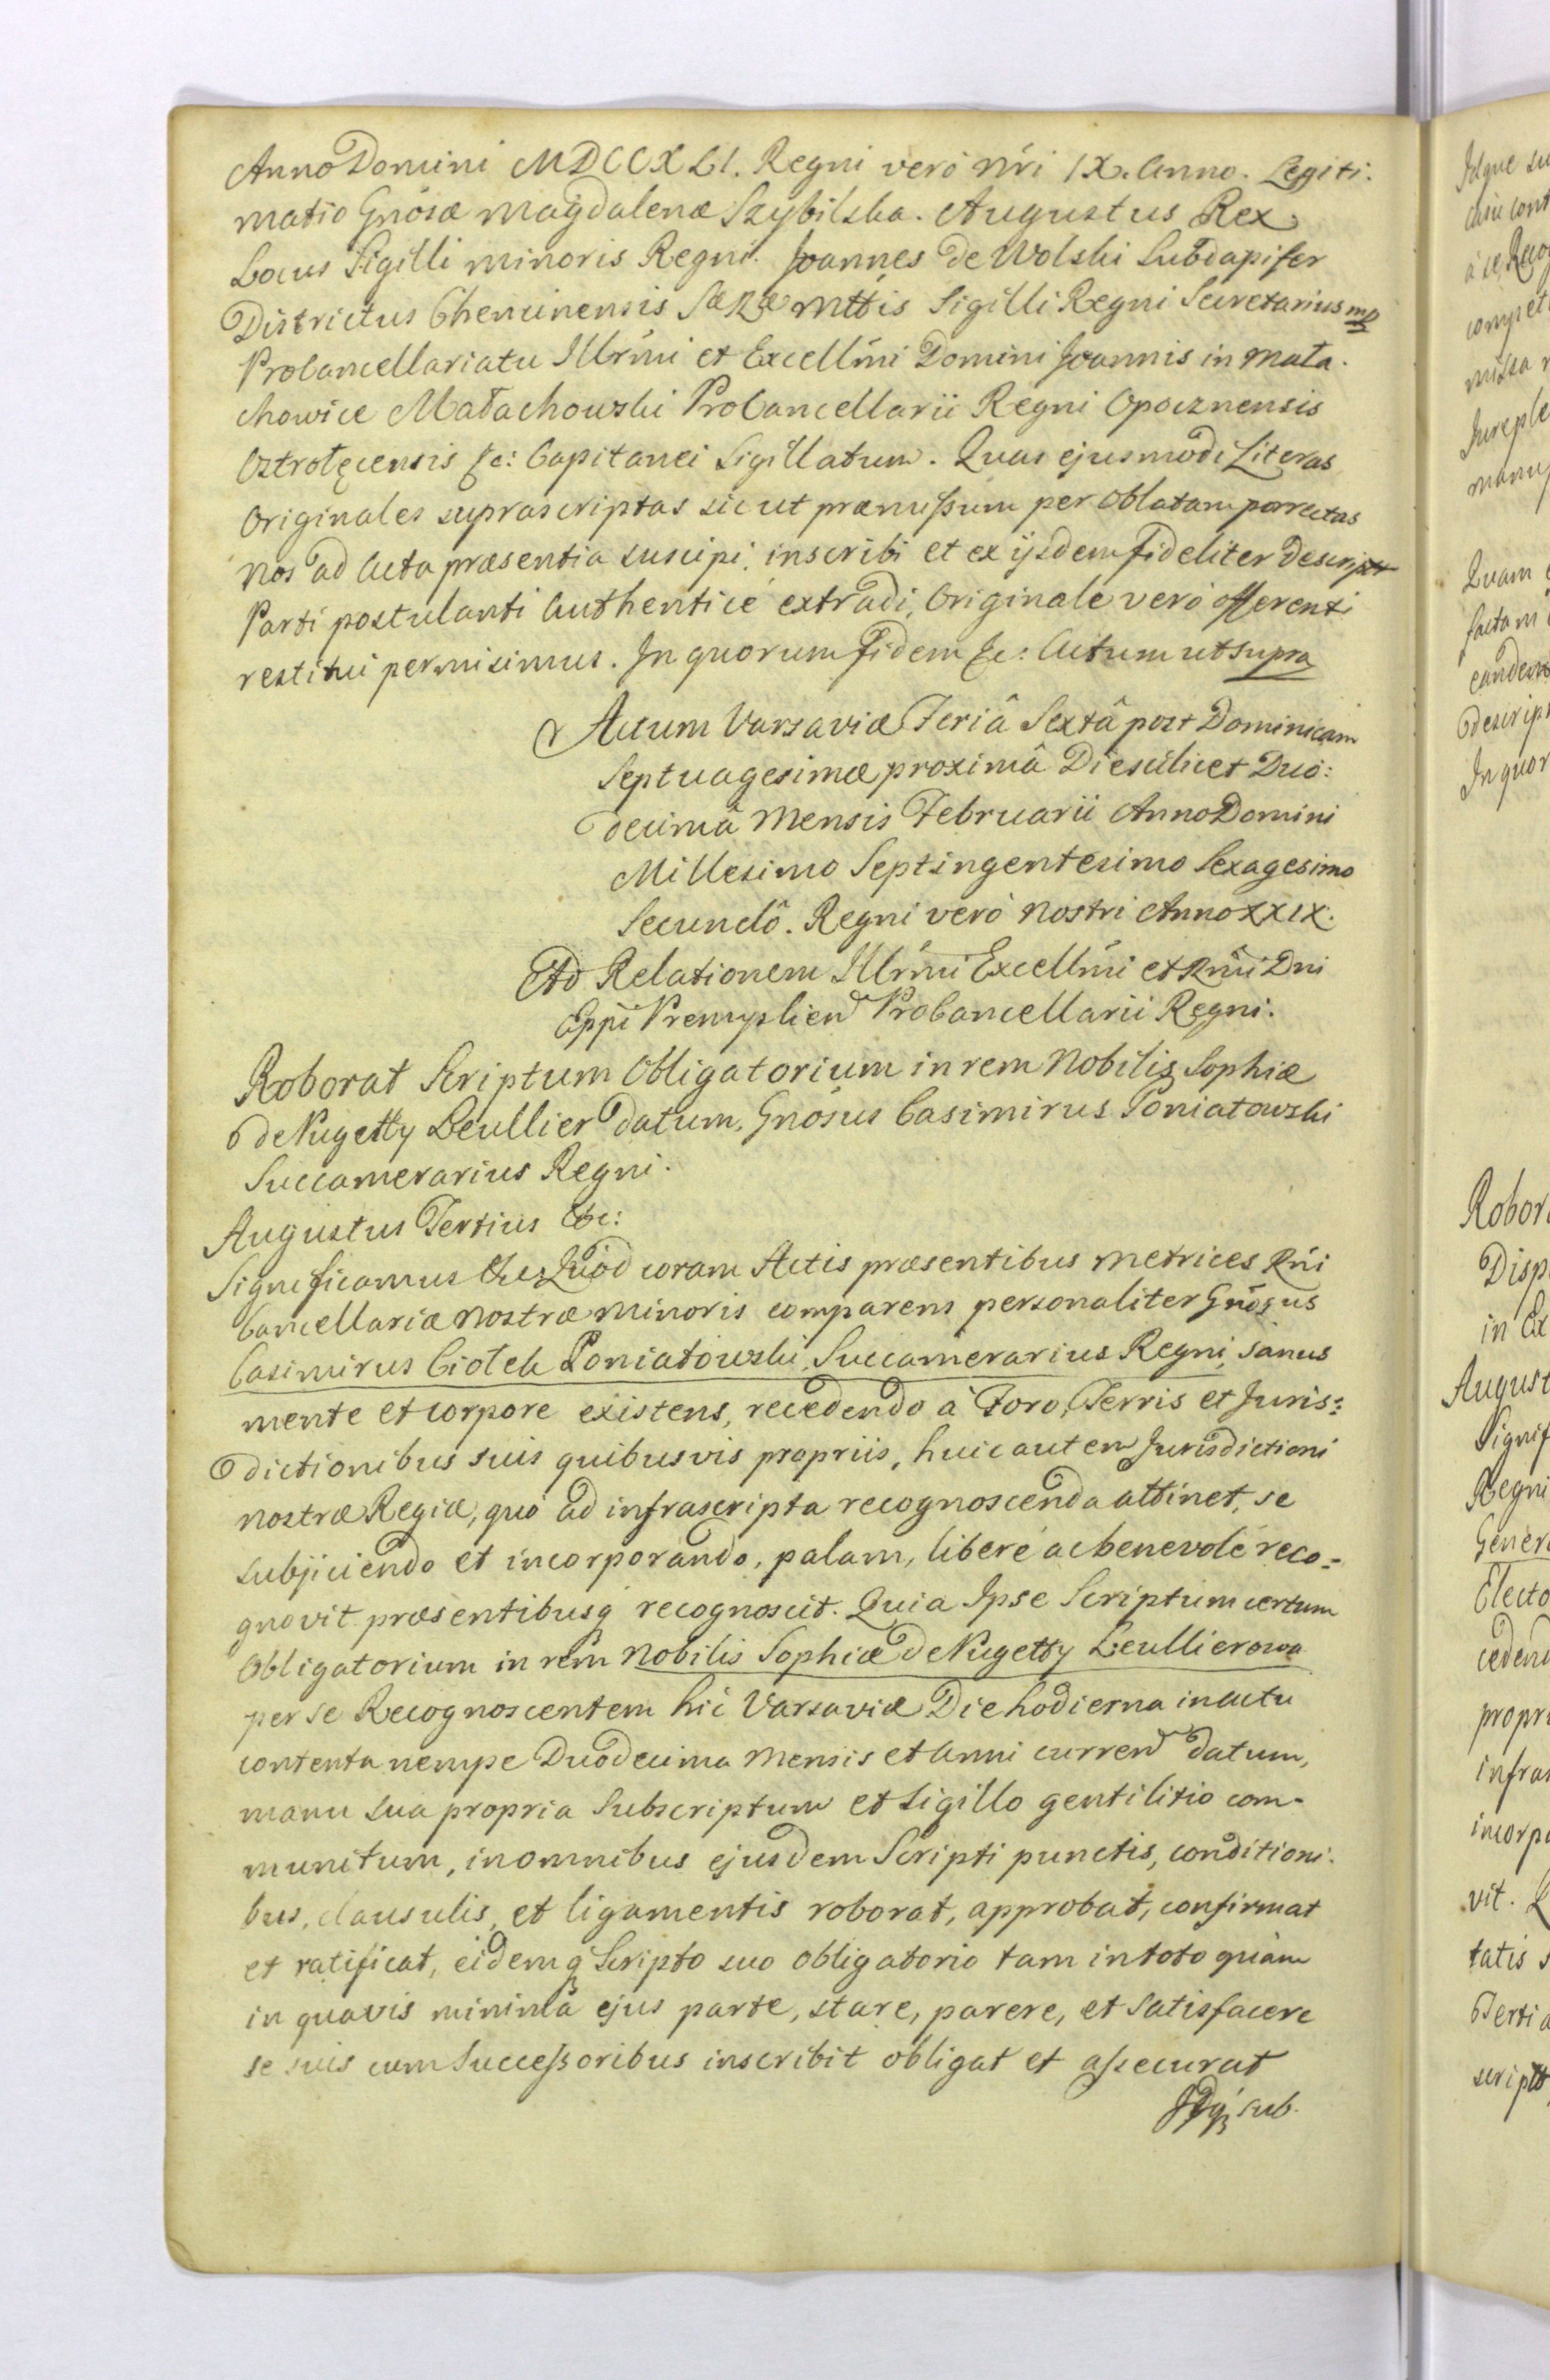 Anno Domini MDCCXLI. Regni verò Nri IX. Anno. Legiti:
matio Gnosæ Magdalenæ Szybilska. Augustus Rex.
Locus Sigilli minoris Regni. Joannes de Wolski Subdapifer
Districtus Chencinensis SæRæ Mttis Sigilli Regni Secretarius mp
Procancellariatu Illrmi et Excellmi Domini Joannis in Mała-
chowice Małachowski ProCancellarii Regni Opocznensis
Ostrołęcensis &c: Capitanei Sigillatum. Quas ejusmodi Literas
Originales suprascriptas sicut præmissum per Oblatam porrectas
Nos ad Acta præsentia suscipi, inscribi et ex ijsdem fideliter descript
Parti postulanti Authenticè extradi, Originale verò offerenti
restitui permisimus. In quorum fidem &c: Actum ut supra
Actum Varsaviæ Feriâ Sextâ post Dominicam
Septuagesimæ proximâ Die scilicet Duo:
decimâ Mensis Februarii Anno Domini
Millesimo Septingentesimo Sexagesimo
Secundô. Regni verò Nostri Anno XXIX.
Ad Relationem Illrmi Excellmi et Rmi Dni
Eppi Premyslien ProCancellarii Regni.
Roborat Scriptum Obligatorium in rem Nobilis Sophiæ
de Nugetty Leullier datum, Gnosus Casimirus Poniatowski
Succamerarius Regni.
Augustus Tertius &c:
Significamus &c Quod coram Actis præsentibus Metrices Rni
Cancellariæ Nostræ Minoris comparens personaliter Gnosus
Casimirus Ciołek Poniatowski, Succamerarius Regni, sanus
mente et corpore existens, recedendo à Foro, Terris et Juris:
dictionibus suis quibusvis propriis, huic autem Jurisdictioni
Nostræ Regiæ, quò ad infrascripta recognoscenda attinet, se
subjiciendo et incorporando, palam, liberè ac benevolè reco-
gnovit præsentibusq recognoscit. Quia Ipse Scriptum certum
Obligatorium in rem Nobilis Sophiæ de Nugetty Leullierowa
per se Recognoscentem hic Varsaviæ Die hodierna in actu
contenta nempe Duodecima Mensis et Anni curren datum,
manu sua propria Subscriptum et Sigillo gentilitio com-
munitum, in omnibus ejusdem Scripti punctis, conditioni-
bus, clausulis, et ligamentis roborat, approbat, confirmat
et ratificat, eidemq Scripto suo obligatorio tam in toto quàm
in quavis minimâ ejus parte, stare, parere, et satisfacere
se suis cum Successoribus inscribit obligat et assecurat
Idq sub.